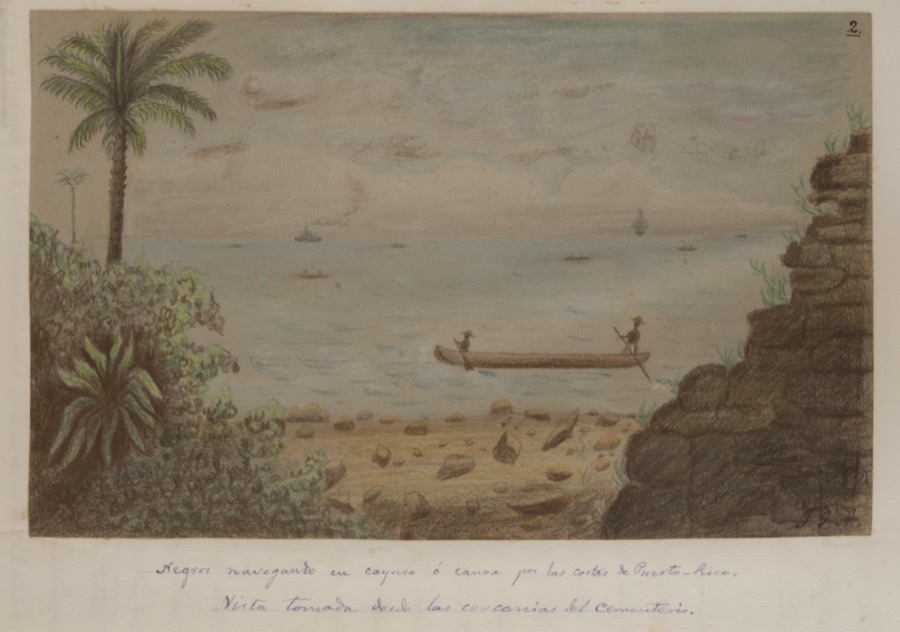 2.
Negros navegando en cayuco ó canoa por las costas de Puerto-Rico.
Vista tomada desde las cercanias del Cementerio.